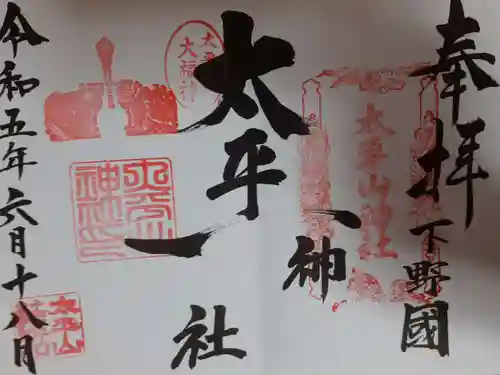 奉拝
下野國
太平山神社
太平山神社
太平山神社印
太平山
令和五年六月十八日